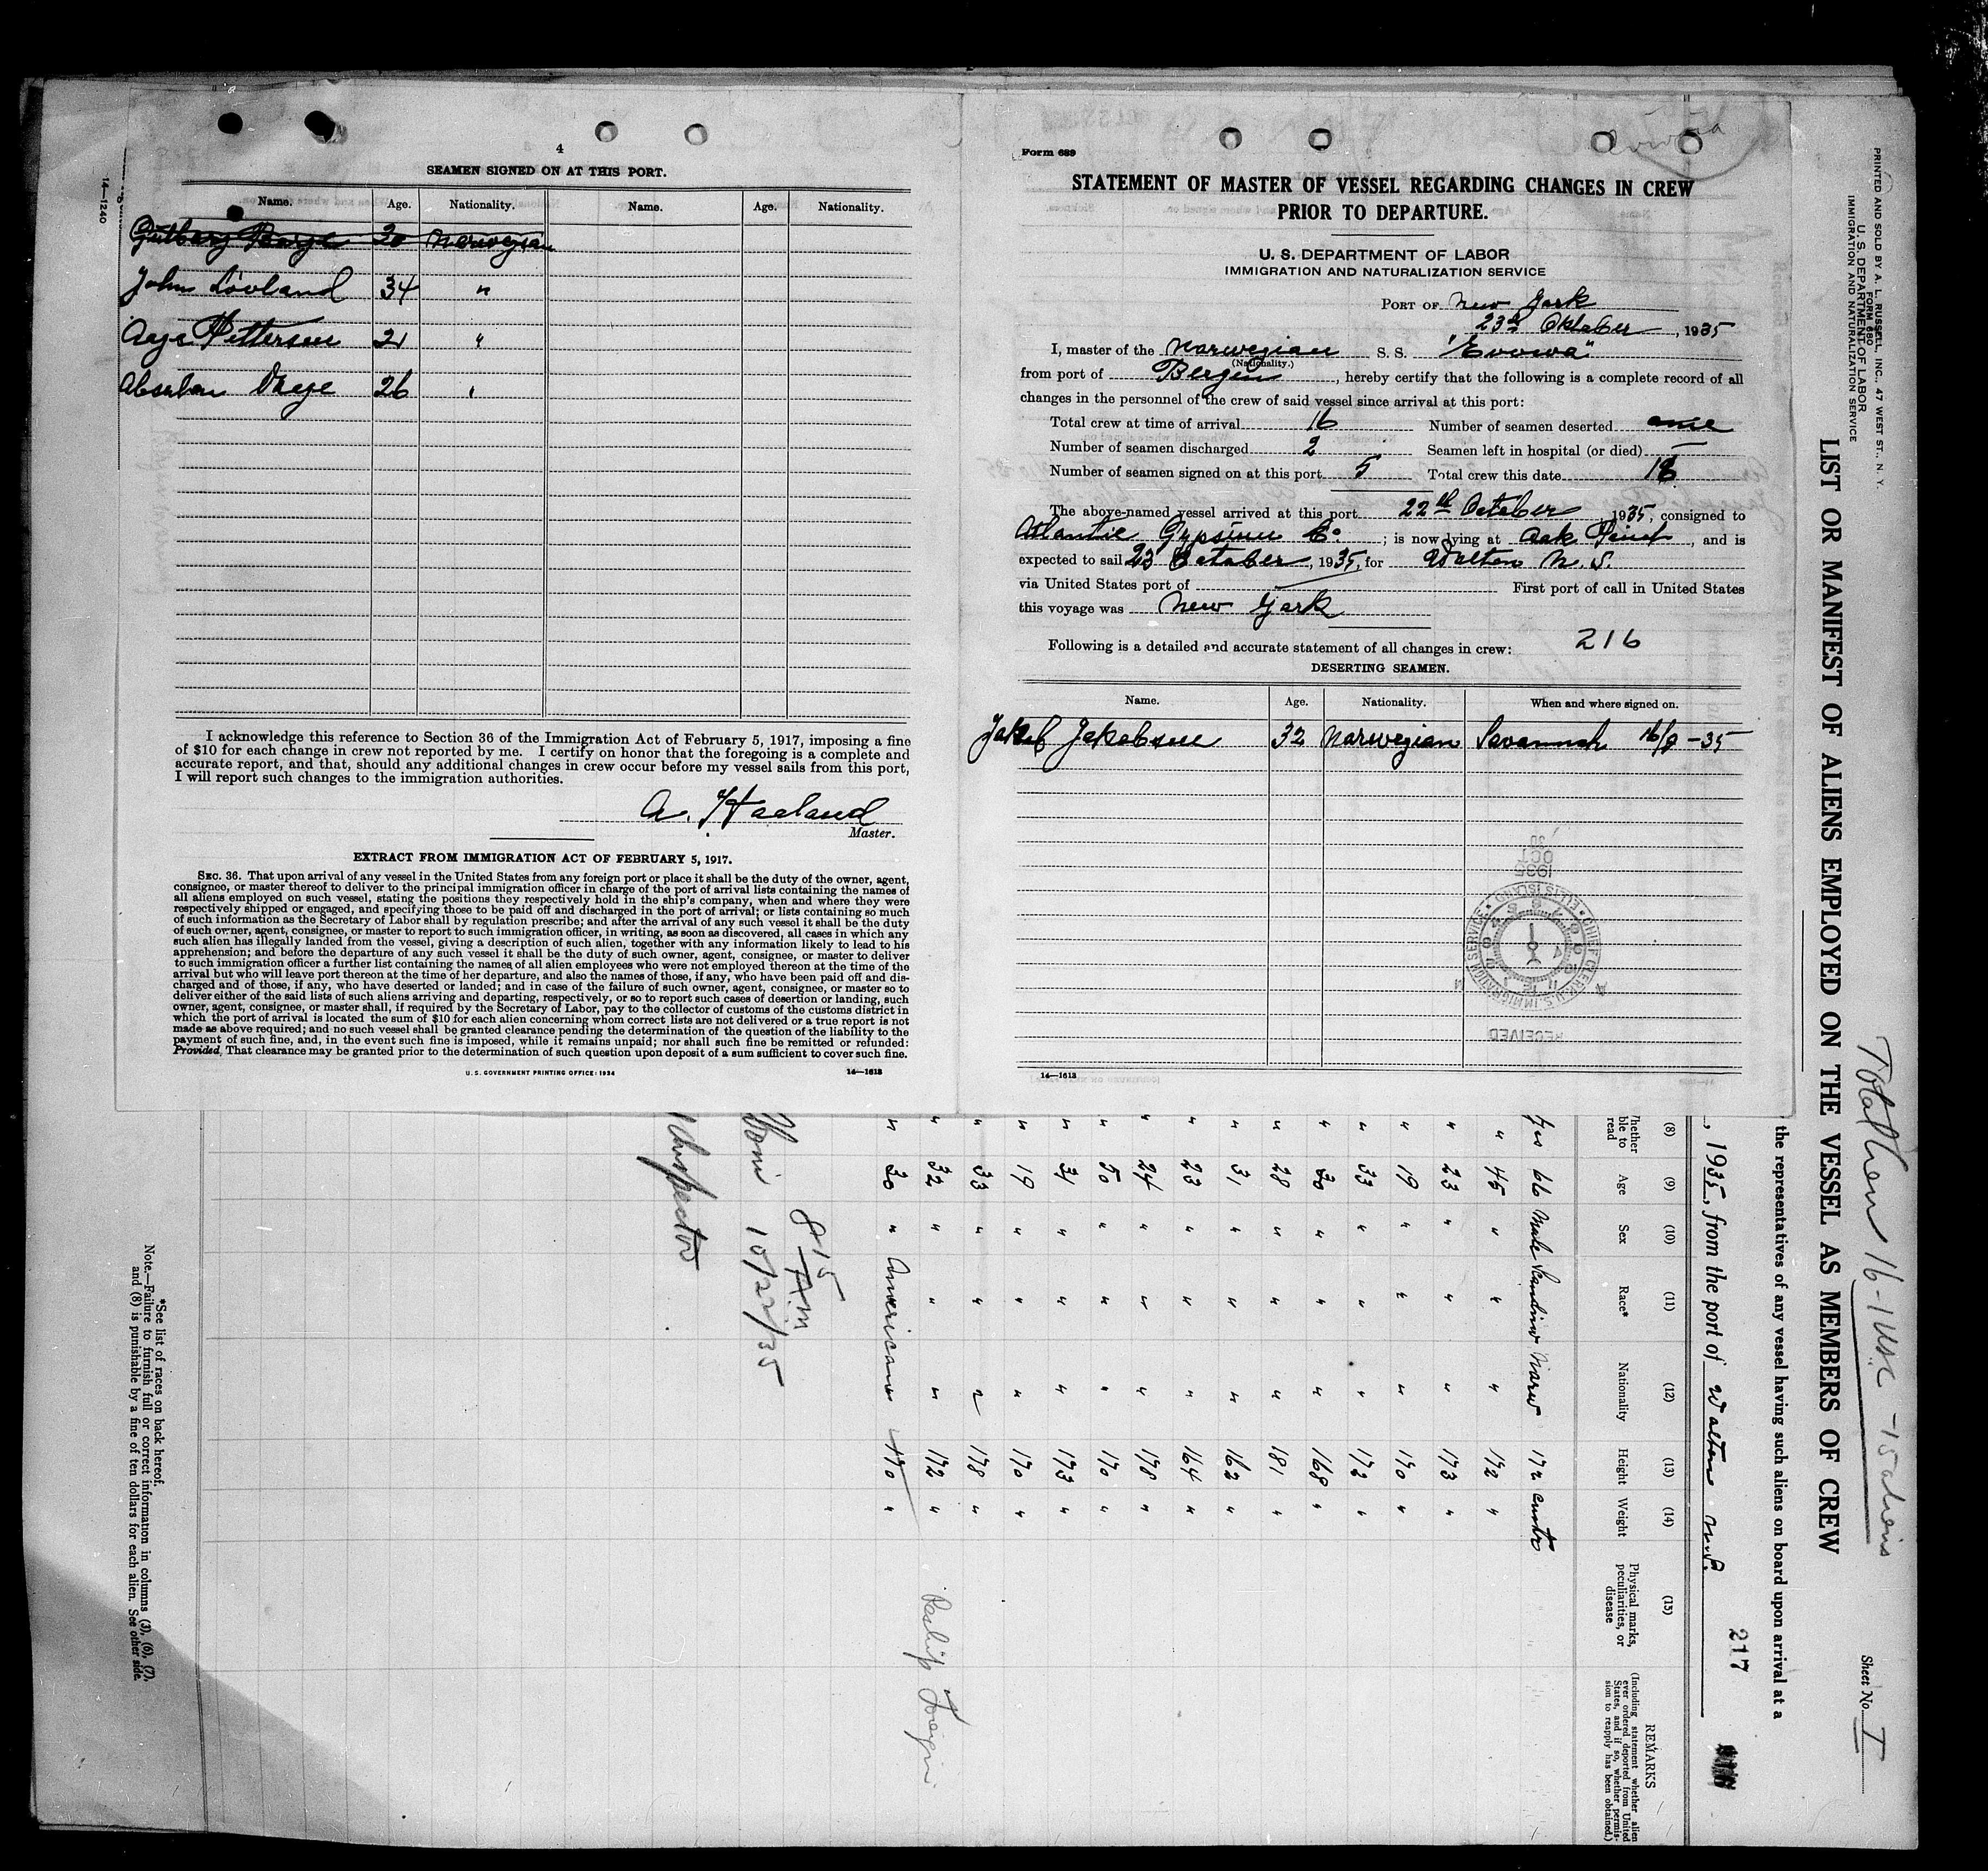 4
SEAMEN SIGNED ON AT THIS PORT.
Name. Age. Nationality. Name. Age. Nationality.
30 Norwegian
John Lovland 34 "
Aage Pettersen 21 "
Absalon 26 "
I acknowledge this reference to Section 36 of the Immigration Act of February 5, 1917, imposing a fine
of $10 for each change in crew not reported by me. I certify on honor that the foregoing is a complete and
accurate report, and that, should any additional changes in crew occur before my vessel sails from this port,
I will report such changes to the immigration authorities.
A. Haaland
Master.
EXTRACT FROM IMMIGRATION ACT OF FEBRUARY 5, 1917.
SEC. 36. That upon arrival of any vessel in the United States from any foreign port or place it shall be the duty of the owner, agent,
consignee, or master thereof to deliver to the principal immigration officer in charge of the port of arrival lists containing the names of
all aliens employed on such vessel, stating the positions they respectively hold in the ship's company, when and where they were
respectively shipped or engaged, and specifying those to be paid off and discharged in the port of arrival; or lists containing so much
of such information as the Secretary of Labor shall by regulation prescribe; and after the arrival of any such vessel it shall be the duty
of such owner, agent, consignee, or master to report to such immigration officer, in writing, as soon as discovered, all cases in which any
such alien has illegally landed from the vessel, giving a description of such alien, together with any information likely to lead to his
apprehension; and before the departure of any such vessel it shall be the duty of such owner, agent, consignee, or master to deliver
to such immigration officer a further list containing the names of all alien employees who were not employed thereon at the time of the
arrival but who will leave port thereon at the time of her departure, and also the names of those, if any, who have been paid off and dis-
charged and of those, if any, who have deserted or landed; and in case of the failure of such owner, agent, consignee, or master so to
deliver either of the said lists of such aliens arriving and departing, respectively, or so to report such cases of desertion or landing, such
owner, agent, consignee, or master shall, if required by the Secretary of Labor, pay to the collector of customs of the customs district in
which the port of arrival is located the sum of $10 for each alien concerning whom correct lists are not delivered or a true report is not
made as above required; and no such vessel shall be granted clearance pending the determination of the question of the liability to the
payment of such fine, and, in the event such fine is imposed, while it remains unpaid; nor shall such fine be remitted or refunded:
Provided, That clearance may be granted prior to the determination of such question upon deposit of a sum sufficient to cover such fine.
U.S. GOVERNMENT PRINTING OFFICE: 1934 14—1613
14—1240
Form 689
STATEMENT OF MASTER OF VESSEL REGARDING CHANGES IN CREW
PRIOR TO DEPARTURE.
U. S. DEPARTMENT OF LABOR
IMMIGRATION AND NATURALIZATION SERVICE
PORT OF New York
23rd Oktober, 1935
I, master of the Norwegian S. S. "Evviva"
(Nationality.)
from port of Bergen, hereby certify that the following is a complete record of all
changes in the personnel of the crew of said vessel since arrival at this port:
Total crew at time of arrival 16 Number of seamen deserted one
Number of seamen discharged 2 Seamen left in hospital (or died) —
Number of seamen signed on at this port 5 Total crew this date 18
The above-named vessel arrived at this port 22th October, 1935, consigned to
Atlantic Gypsium Co; is now lying at Oak Point, and is
expected to sail 23 October, 1935, for Walton N. S.
via United States port of First port of call in United States
this voyage was New York
Following is a detailed and accurate statement of all changes in crew: 216
DESERTING SEAMEN.
Name. Age. Nationality. When and where signed on.
Jakob Jakobsen 32 Norwegian Savannah 16/9-35
1935
OCT
30
CHIEF CLERK U.S. IMMIGRATION SERVICE • ELLIS ISLAND
RECEIVED
14—1613
PRINTED AND SOLD BY A. L. RUSSELL, INC., 47 WEST ST., N. Y.
FORM 680
U. S. DEPARTMENT OF LABOR
IMMIGRATION AND NATURALIZATION SERVICE
Total Crew 16 - 1 USC - 15 aliens
Sheet No. I
LIST OR MANIFEST OF ALIENS EMPLOYED ON THE VESSEL AS MEMBERS OF CREW
the representatives of any vessel having such aliens on board upon arrival at a
217
, 1935, from the port of Walton N.S.
(8) (9) (10) (11) (12) (13) (14) (15)
Whether able to read Age Sex Race* Nationality Height Weight Physical marks, peculiarities, or disease REMARKS (Including statement whether alien ever ordered deported from United States, and if so, whether permission to reapply has been obtained.)
yes 66 Male Scandinav Norw 172
" 45 " " " 172 "
" 23 " " " 173 "
" 19 " " " 170 "
" 33 " " " 172 "
" 30 " " " 168 "
" 28 " " " 181 "
" 31 " " " 162 "
" 23 " " " 164 "
" 24 " " " 178 "
" 50 " " " 170 "
" 31 " " " 173 "
" 19 " " " 170 "
" 33 " " " 178 "
" 32 " " " 172 "
" 30 " American 170 "
Reship Foreign
815 AM
10/22/35
Inspector
*See list of races on back hereof.
Note.—Failure to furnish full or correct information in columns (3), (6), (7),
and (8) is punishable by a fine of ten dollars for each alien. See other side.